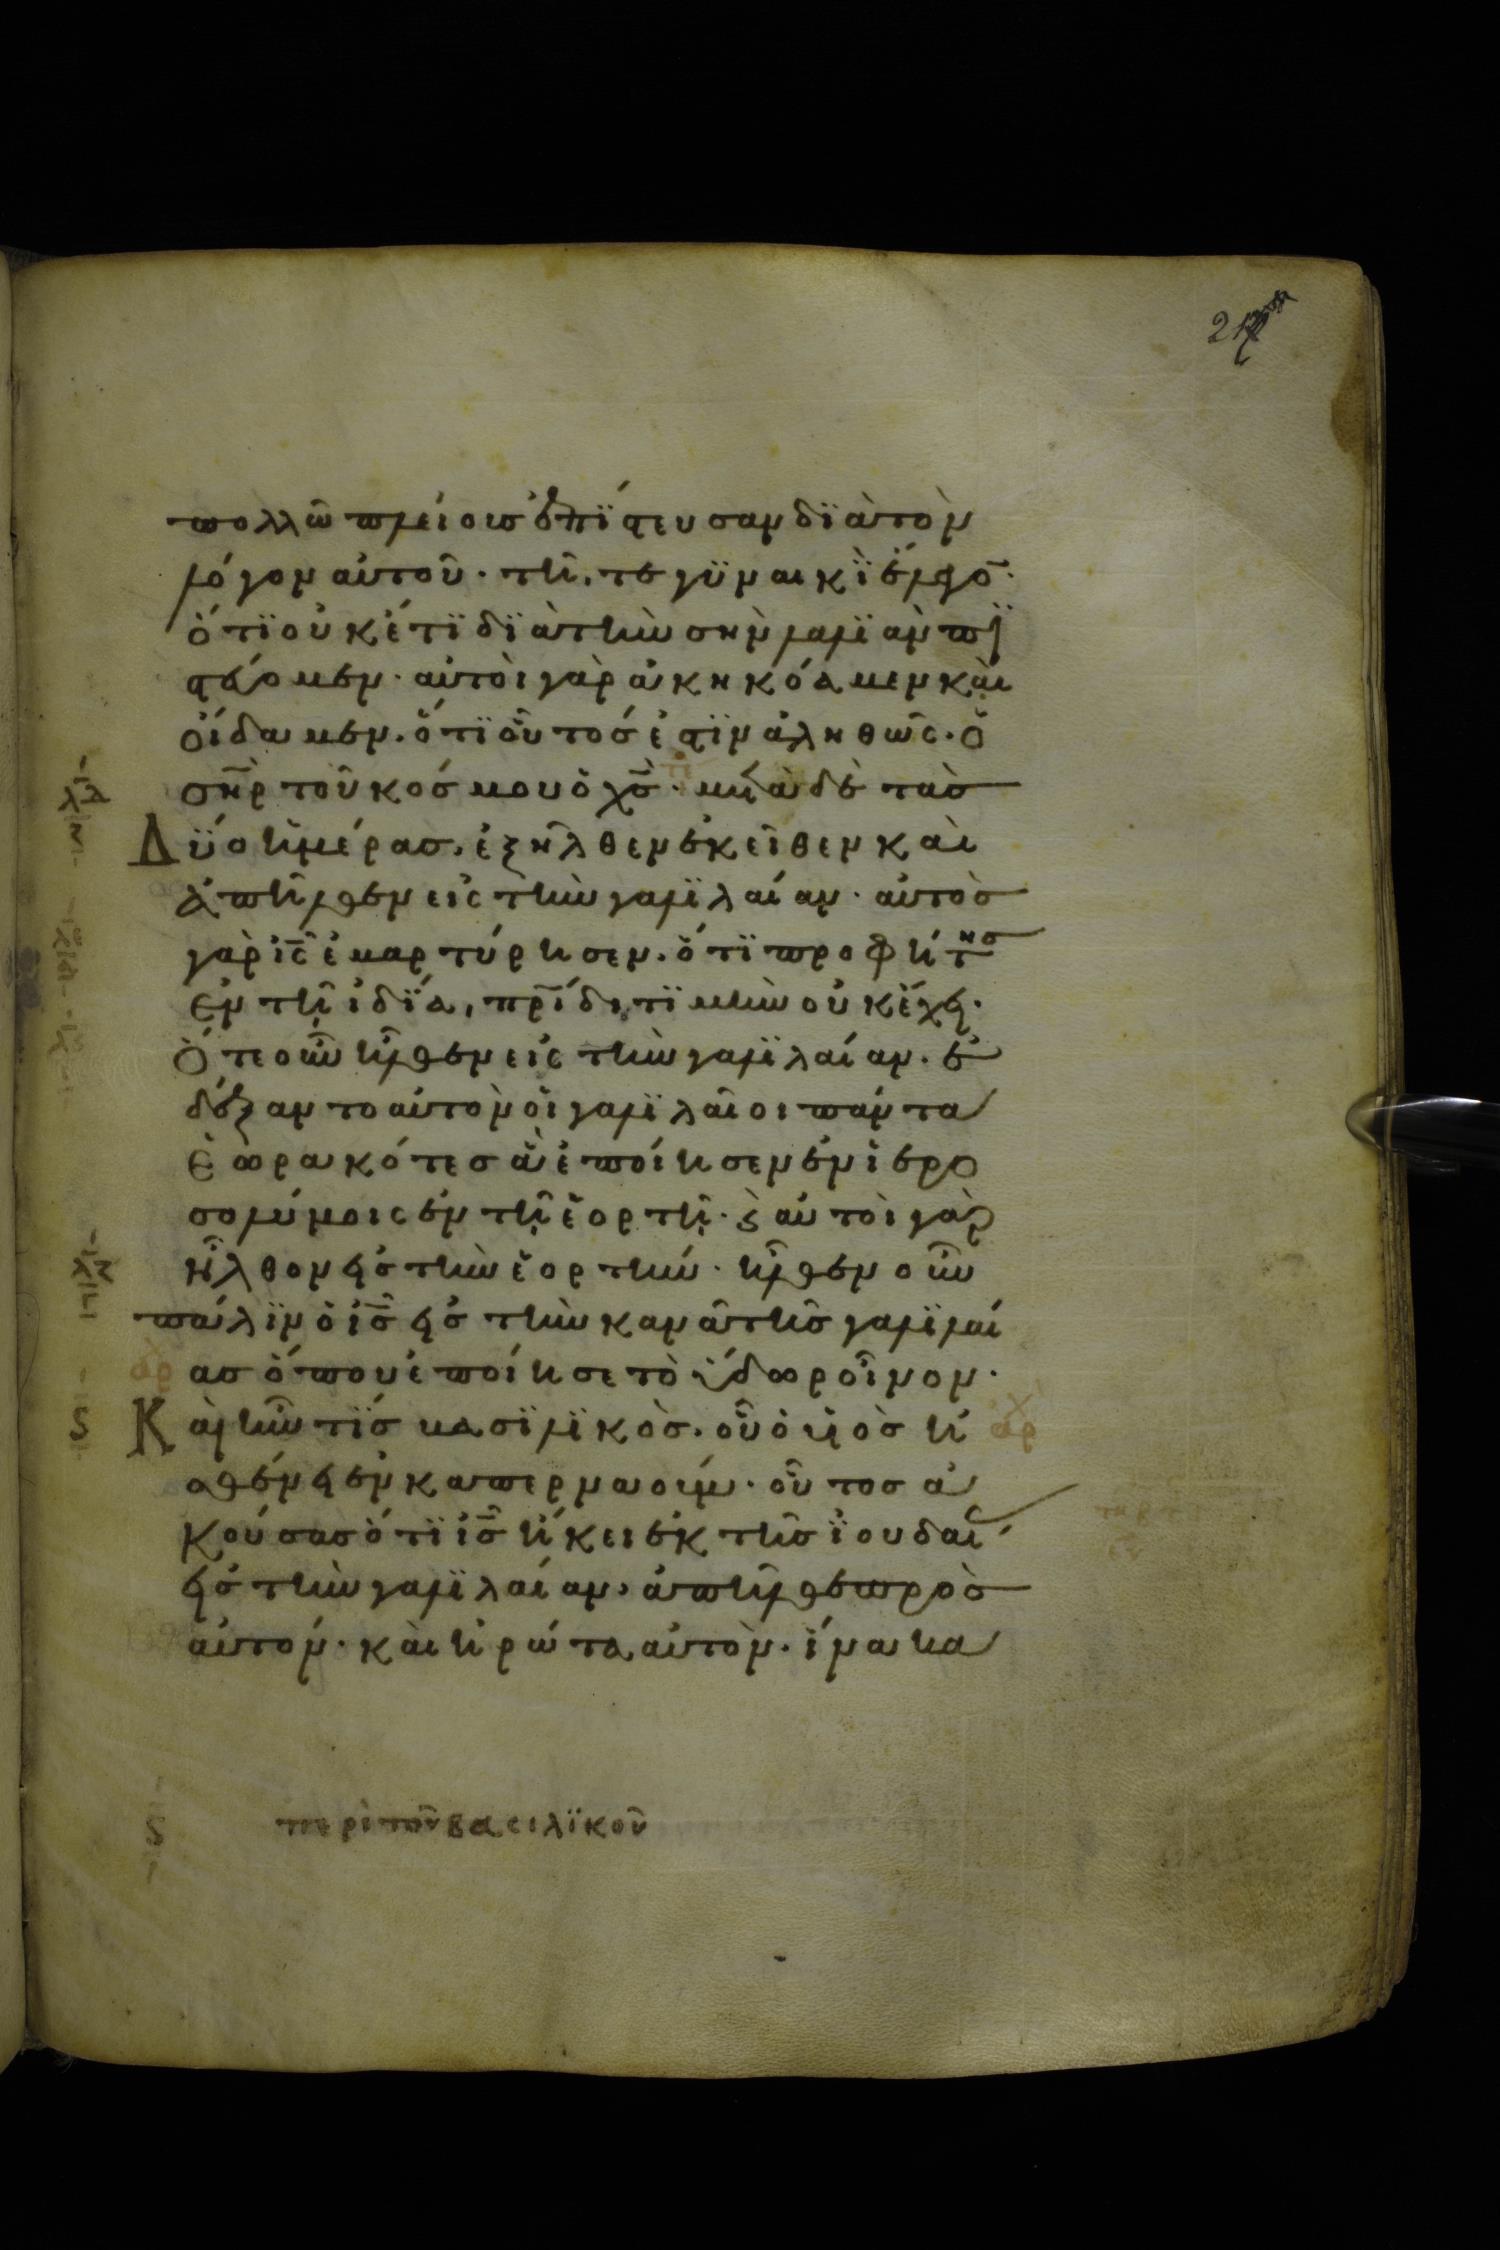 πολλῶ πλείουσ ἐπίστευσαν δϊὰ τὸν
λόγον αὐτοῦ· τῆ, τε γϋναικῒ ἔλεγο̅·
ὅτϊ οὐκέτϊ δϊὰ τὴν σὴν λαλϊὰν πϊ
στεύομεν· αὐτοὶ γὰρ ἀκηκόαμεν καὶ
οἴδαμεν. ὅτϊ οὗτοσ ἐστὶν ἀληθῶς· ὁ
σ̅η̅ρ τοῦ κόσμου ὁ χ̅σ̅· μετὰ δὲ τὰσ
Δϋο ἡμέρασ. ἐξῆλθεν ἐκεῖθεν καὶ
ἀπῆλθεν εἰς τὴν γαλϊλαίαν· αὐτὸσ
γὰρ ι̅ς̅ ἐμαρτύρησεν. ὅτϊ προφήτησ
ἐν τῆ ἰδία, π̅ρ̅ίδι, τϊμὴν οὐκ ἔχει·
Ὅτε οὖν ἦλθεν εἰς τὴν γαλϊλαίαν. ἐ
δέξαντο αὐτὸν οἱ γαλϊλαῖοι πάντα
ἑωρακότεσ ἃ ἐποίησεν ἐν ἱερο
σολύμοις ἐν τῆ ἑορτῆ· ϗ αὐτοὶ γὰρ
ἦλθον εἰσ τὴν ἑορτήν· ἦλθεν οὖν
πάλϊν ὁ ι̅σ̅ εἰσ τὴν κανᾶ τῆσ γαλϊλαί
ασ ὅπου ἐποίησε τὸ ὕδωρ οἶνον·
Καὶ ἦν τϊσ βασϊλϊκὸσ. οὗ ὁ υἱὸσ ἠ
σθένει ἐν καπερναούμ· οὗτοσ ἀ
κούσασ ὅτϊ ι̅σ̅ ἥκει ἐκ τῆσ ϊουδαί
εἰσ τὴν γαλϊλαίαν, ἀπῆλθε πρὸσ
αὐτόν· καὶ ἠρώτα αὐτὸν· ἵνα κα
ϛ περὶ τοῦ βασιλϊκοῦ